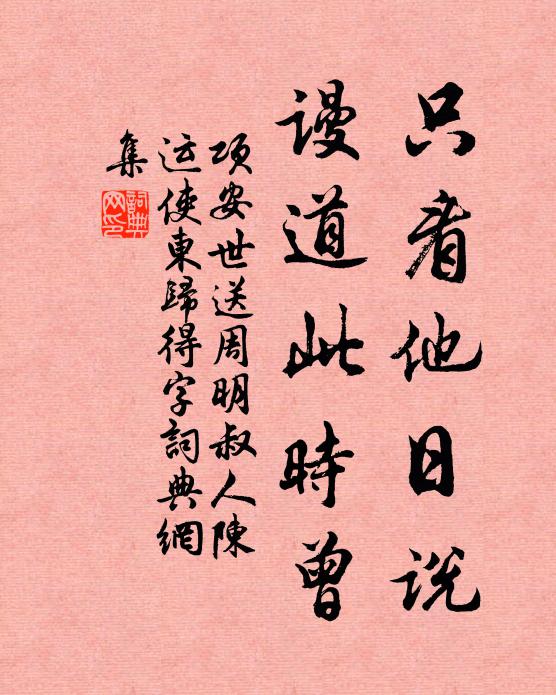 只看他日说
谩道此時曾
项安世送周明叔人陳
运使東歸得字詞典網
集
詞典
网印